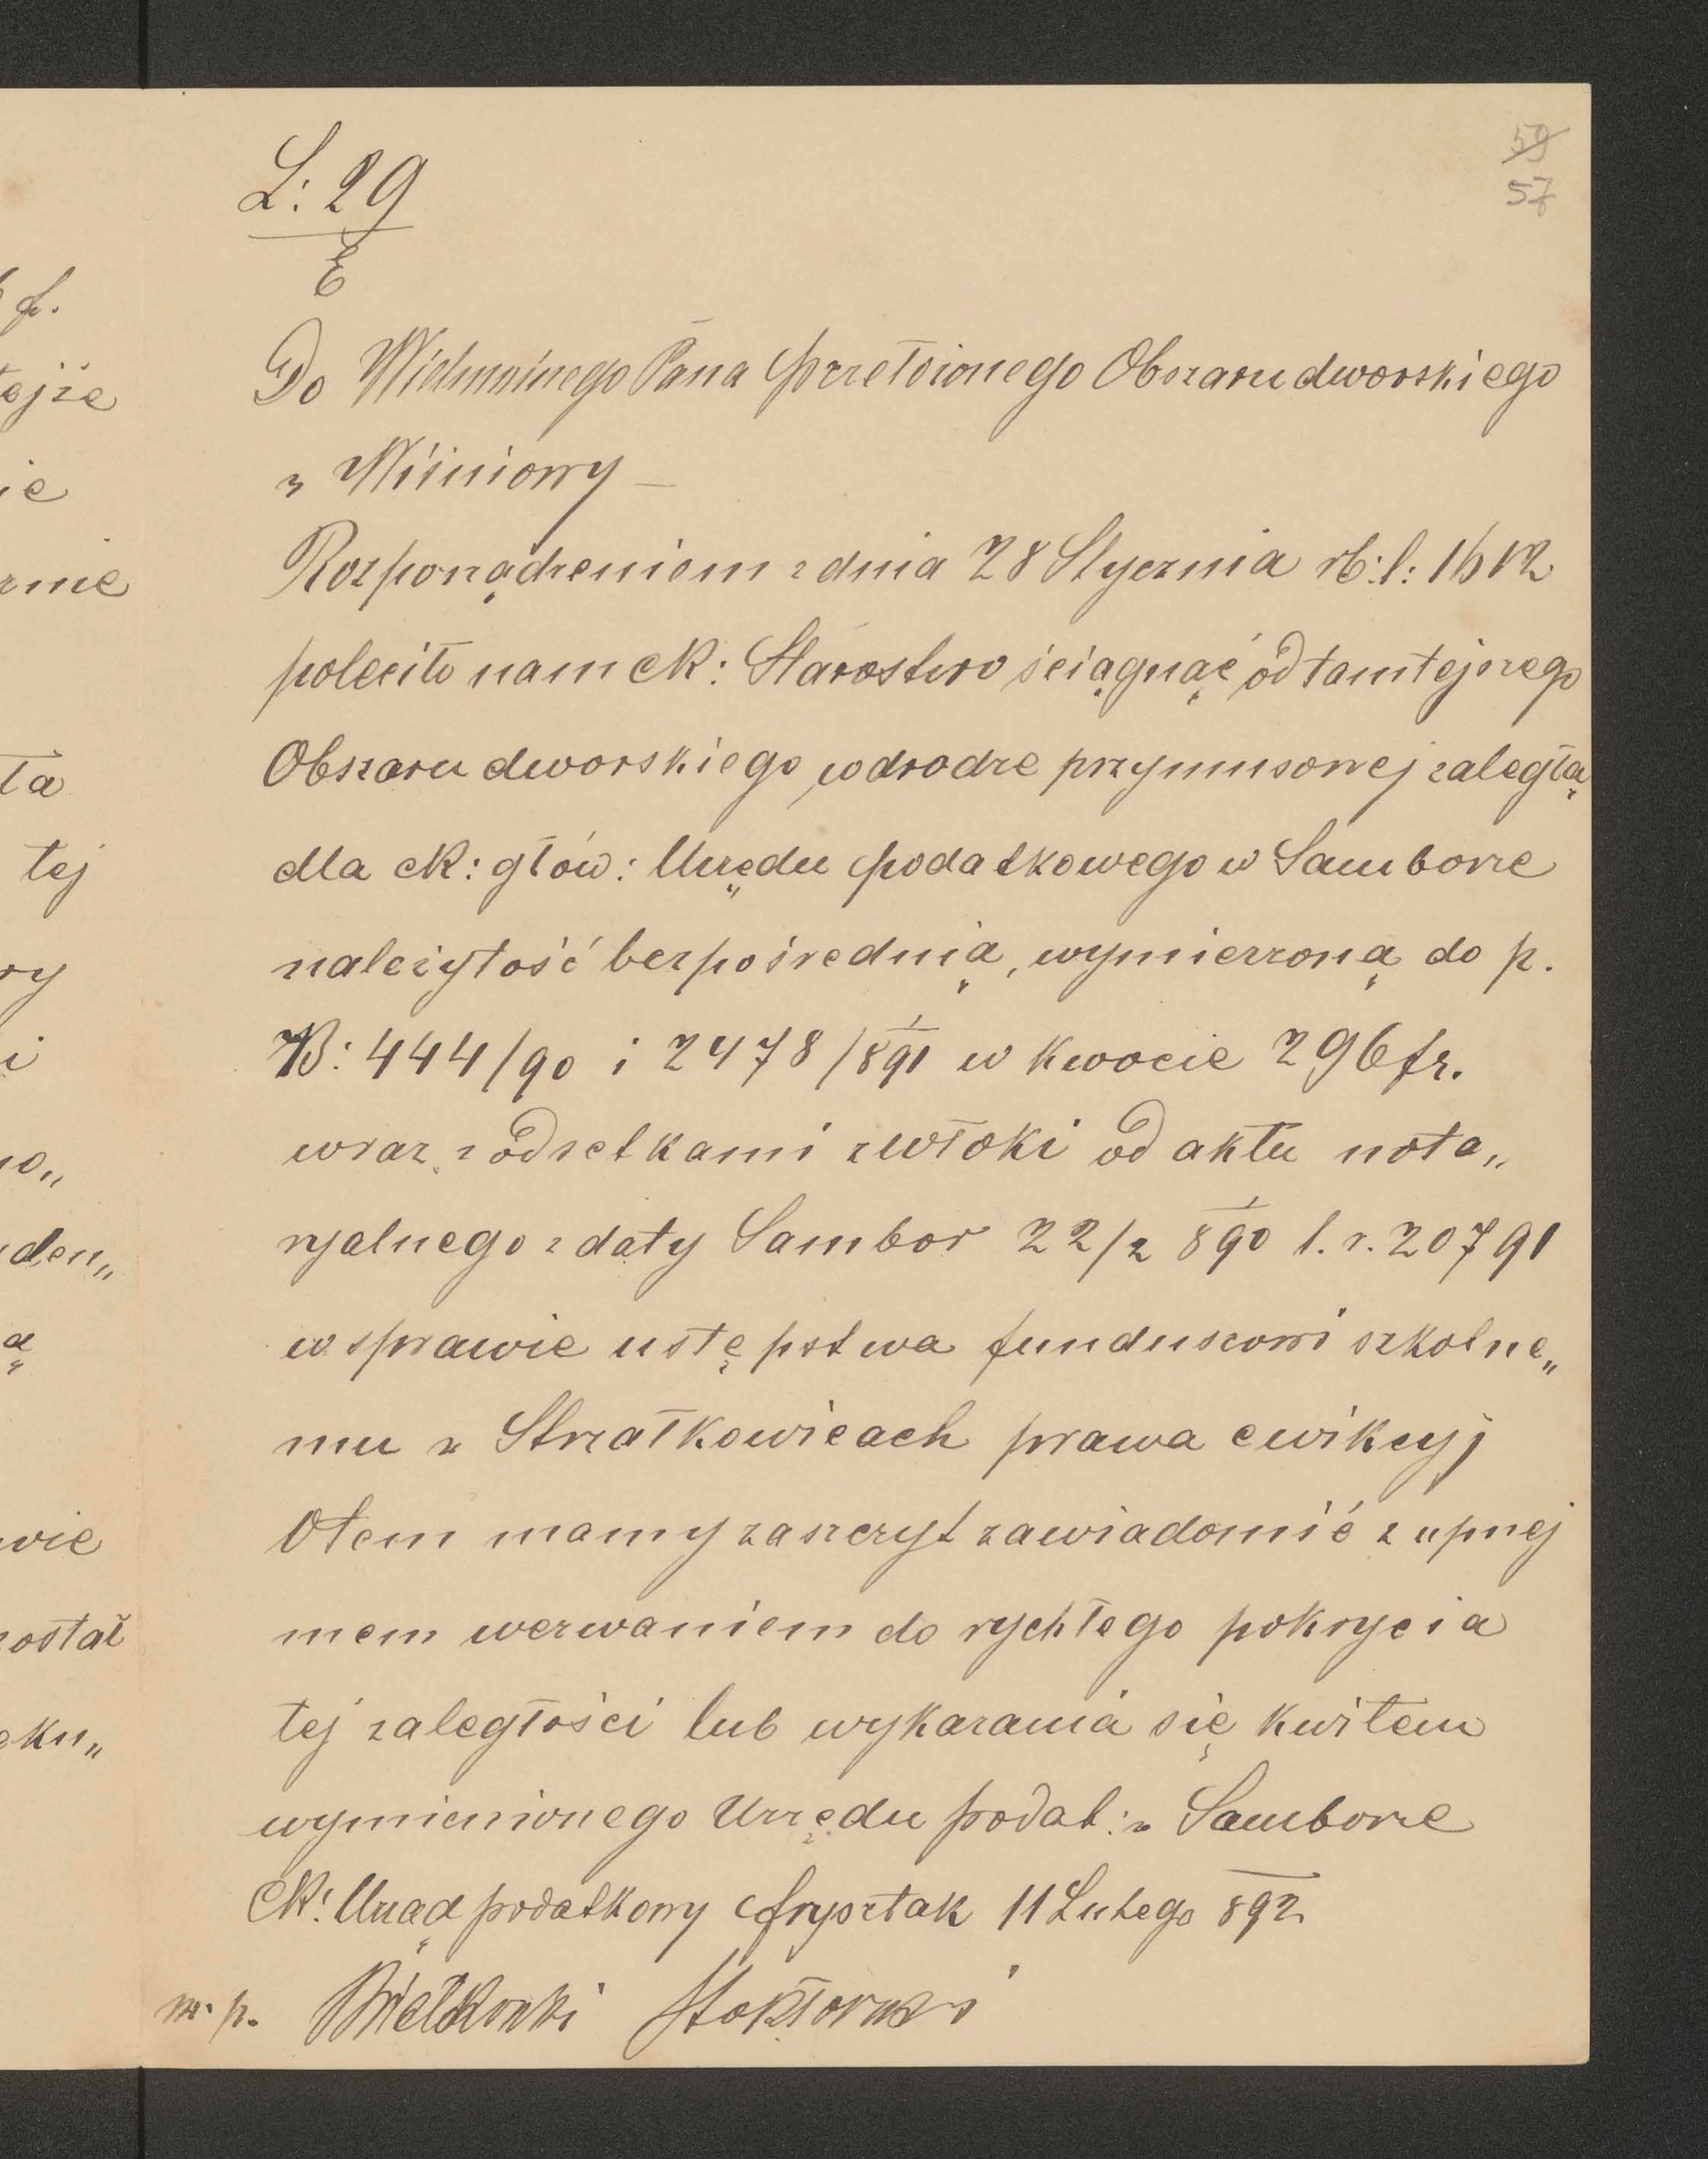 59
57
L: 29
E
Do Wielmożnego Pana Przełożonego Obszaru dworskiego
w Wiśniowy –
Rozporządzeniem z dnia 28 Stycznia rb: l: 1612
poleciło nam ck: Starostwo ściągnąć od tamtejszego
Obszaru dworskiego, w drodze przymusowej zaległą
dla ck: głów: Urzędu podatkowego w Samborze
należytość bezpośrednią, wymierzoną do p.
B: 444/90 i 2478/891 w kwocie 296 fr.
wraz z odsetkami zwłoki od aktu nota„
ryalnego z daty Sambor 22/2 890 l. r. 20791
w sprawie ustępstwa funduszowi szkolne„
mu w Strzałkowicach prawa ewikcyj
O tem mamy zaszczyt zawiadomić z uprzej
mem wezwaniem do rychłego pokrycia
tej zaległości lub wykazania się kwitem
wymienionego Urzędu podat: w Samborze
CK: Urząd podatkowy Frysztak 11 Lutego 892
m. p.
f.
tejże
ie
rnie
ła
tej
ry
i
no„
den„
ą
wie
został
eku„